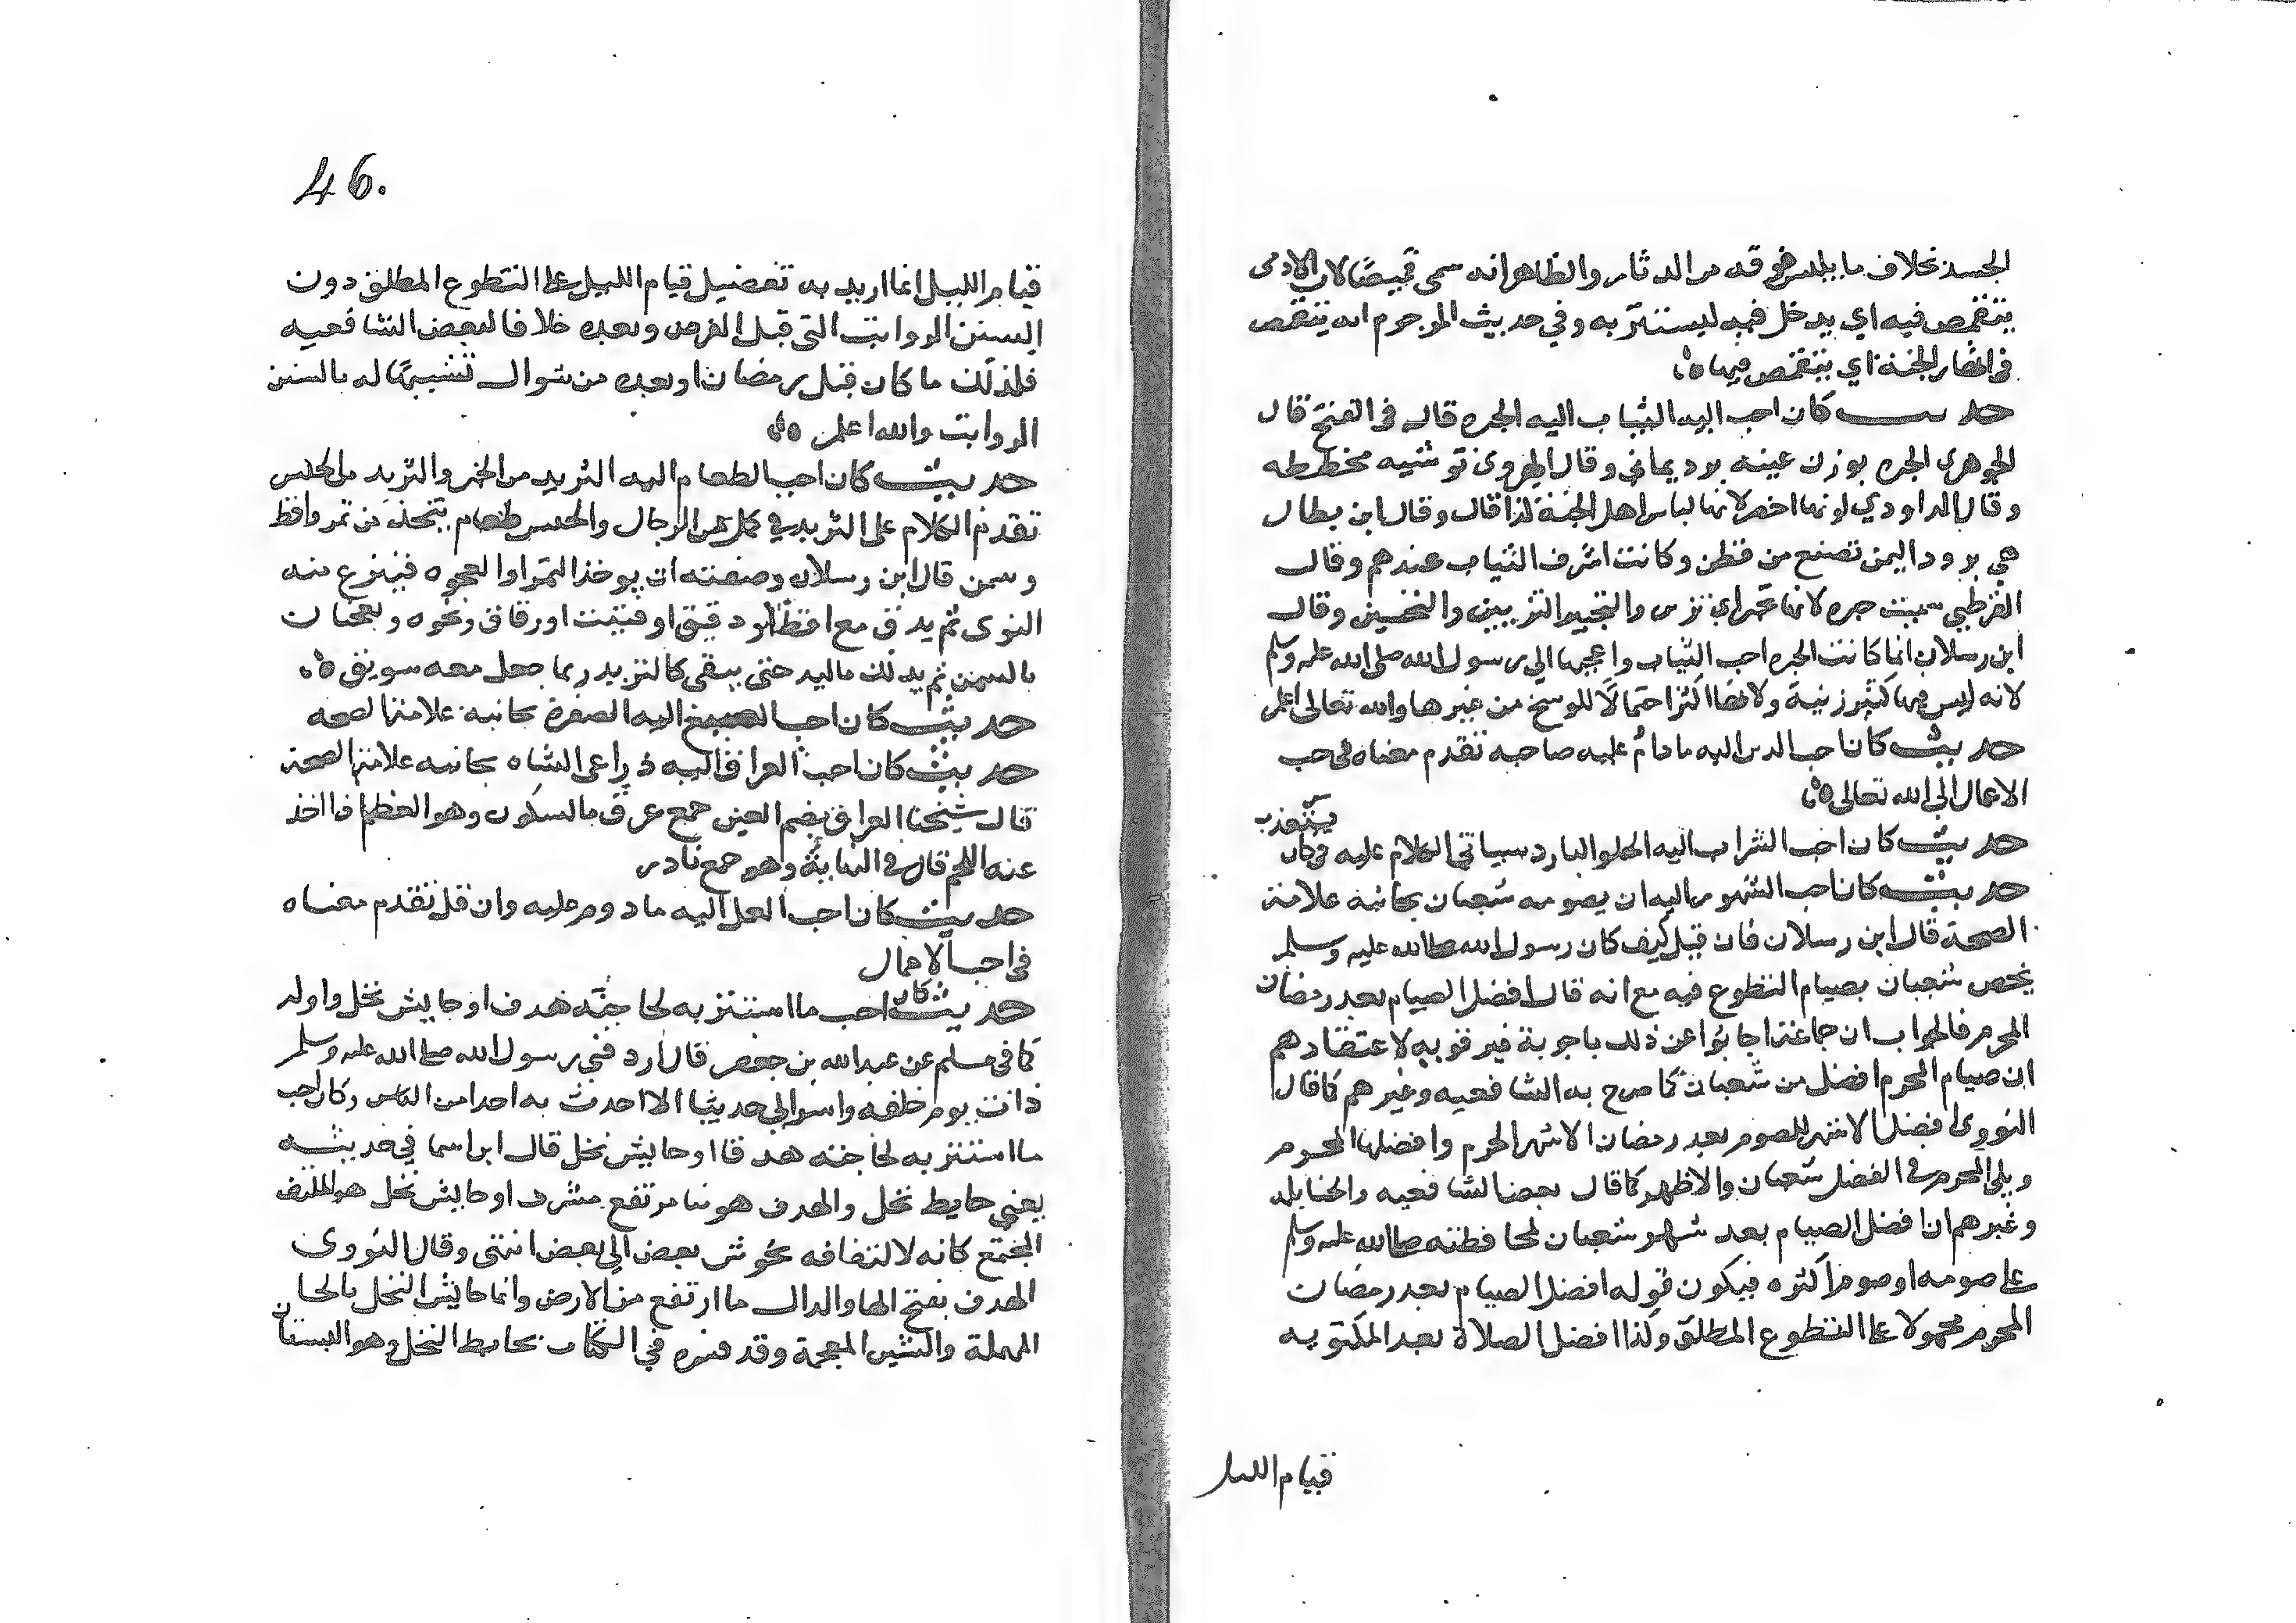 الجسد بخلاف ما يلبس فوقه من الدثار والظاهر انه سمى قميصًا لان الادمى
يتقمص فيه اي يدخل فيه ليستتر به وفي حديث المرجوم انه يتقمص
في انهار الجنة اي يتقمص فيها
حديث كان احب اليه الثياب اليه الحبره قال في الفتح قال
الجوهري الحبره بوزن عينبه برد يماني وقال الهروى توشيه مخططه
وقال الداودي لونها اخضر لانها لباس اهل الجنة كذا قال وقال ابن بطال
هي برود اليمن تصنع من قطن وكانت اشرف الثياب عندهم وقال
القرطبي سميت حبره لانها تحبر اي تزين والتحبير التزيين والتحسين وقال
ابن رسلان انما كانت الحبره احب الثياب واعجبها الى رسول الله صلى الله عليه وسلم
لانه ليس فيها كثير زينة ولانها اكثر احتمالًا للوسخ من غيرها والله تعالى اعلم
حديث كان احب الدين اليه ما دام عليه صاحبه تقدم معناه في احب
الاعمال الى الله تعالى
حديث كان احب الشراب اليه الحلو البارد سياتي الكلام عليه في كان
يستعذب
حديث كان احب الشهور اليه ان يصومه شعبان بجانبه علامة
الصحة قال ابن رسلان فان قيل كيف كان رسول الله صلى الله عليه وسلم
يخص شعبان بصيام التطوع فيه مع انه قال افضل الصيام بعد رمضان
المحرم فالجواب ان جماعة اجابوا عن ذلك باجوبة غير قويه لاعتقادهم
ان صيام المحرم افضل من شعبان كما صرح به الشافعيه وغيرهم كما قال
النووى افضل الاشهر للصوم بعد رمضان الاشهر الحرم وافضلها المحرم
ويلي المحرم في الفضل شعبان والاظهر كما قال بعض الشافعيه والحنابله
وغيرهم ان افضل الصيام بعد شهر شعبان لمحافظته صلى الله عليه وسلم
على صومه او صوم اكثره فيكون قوله افضل الصيام بعد رمضان
المحرم محمولا على التطوع المطلق وكذا افضل الصلاة بعد المكتوبه
قيام الليل
46.
قيام الليل انما اريد به تفضيل قيام الليل على التطوع المطلق دون
السنن الرواتب التى قبل الفرض وبعده خلافا لبعض الشافعيه
فلذلك ما كان قبل رمضان او بعده من شوال تشبيهًا له بالسنن
الرواتب والله اعلم
حديث كان احب الطعام اليه الثريد من الخبز والثريد من الحيس
تقدم الكلام على الثريد في كمل من الرجال والحيس طعام يتخذ من تمر واقط
وسمن قال ابن رسلان وصفته ان يوخذ التمر او العجوه فينزع منه
النوى ثم يدق مع اقط او دقيق او فتيت او رقاق ونحوه ويعجنان
بالسمن ثم يدلك باليد حتى يبقى كالثريد ربما جعل معه سويق
حديث كان احب الصبغ اليه الصفرة بجانبه علامة الصحه
حديث كان احب العراق اليه ذراعى الشاه بجانبه علامة الصحة
قال شيخنا العراق بضم العين جمع عرق بالسكون وهو العظم اذا اخذ
عنه اللحم قال في النهاية وهو جمع نادر
حديث كان احب العمل اليه ما دووم عليه وان قل تقدم معناه
في احب الاعمال
حديث كان احب ما استتر به لحاجته هدف او حايش نخل واوله
كما في مسلم عن عبد الله بن جعفر قال اردفني رسول الله صلى الله عليه وسلم
ذات يوم خلفه واسر الي حديثا لا احدث به احدا من الناس وكان احب
ما استتر به لحاجته هدفا او حايش نخل قال ابن اسما في حديثه
يعني حايط نخل والهدف هو بنا مرتفع مشرف او حايش نخل هو الملتف
المجتمع كانه لالتفافه يحوش بعض الي بعض انتهى وقال النووى
الهدف بفتح الها والدال ما ارتفع من الارض واما حايش النخل بالحا
المهملة والشين المعجمة وقد فسره في الكتاب بحايط النخل وهو البستان